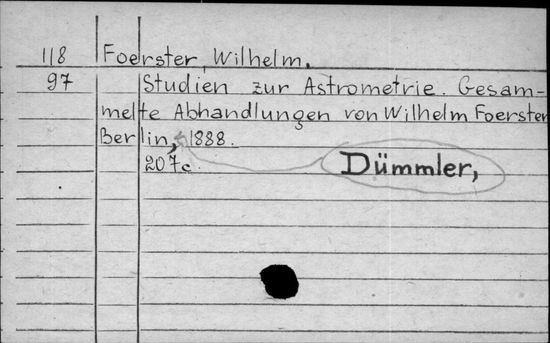 118 Foerster, Wilhelm.
97 Studien zur Astrometrie. Gesam-
melte Abhandlungen von Wilhelm Foerster
Berlin, 1888.
207c. Dümmler,